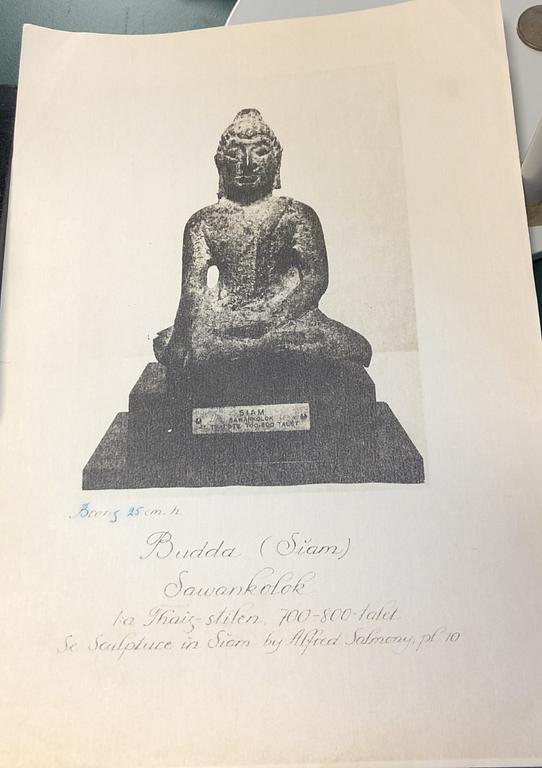 SIAM
SAWANKOLOK
700-800 TALET
Brons 25 cm. h.
Budda (Siam)
Sawankolok
1:a Thaiz-stilen. 700-800-talet
Se Sculpture in Siam by Alfred Salmony, pl 10